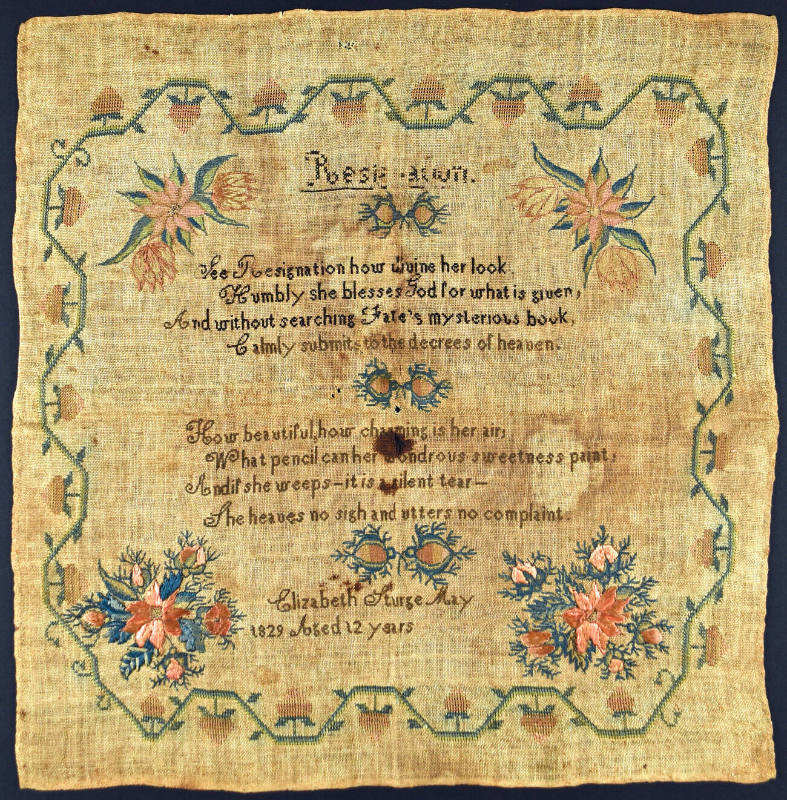 Resignation.
See Resignation how divine her look
Humbly she blesses God for what is given,
And without searching Fate's mysterious book,
Calmly submits to the decrees of heaven.
How beautiful, how charming is her air;
What pencil can her wondrous sweetness paint;
And if she weeps—it is a silent tear—
She heaves no sigh and utters no complaint.
Elizabeth Sturge May
1829 Aged 12 years